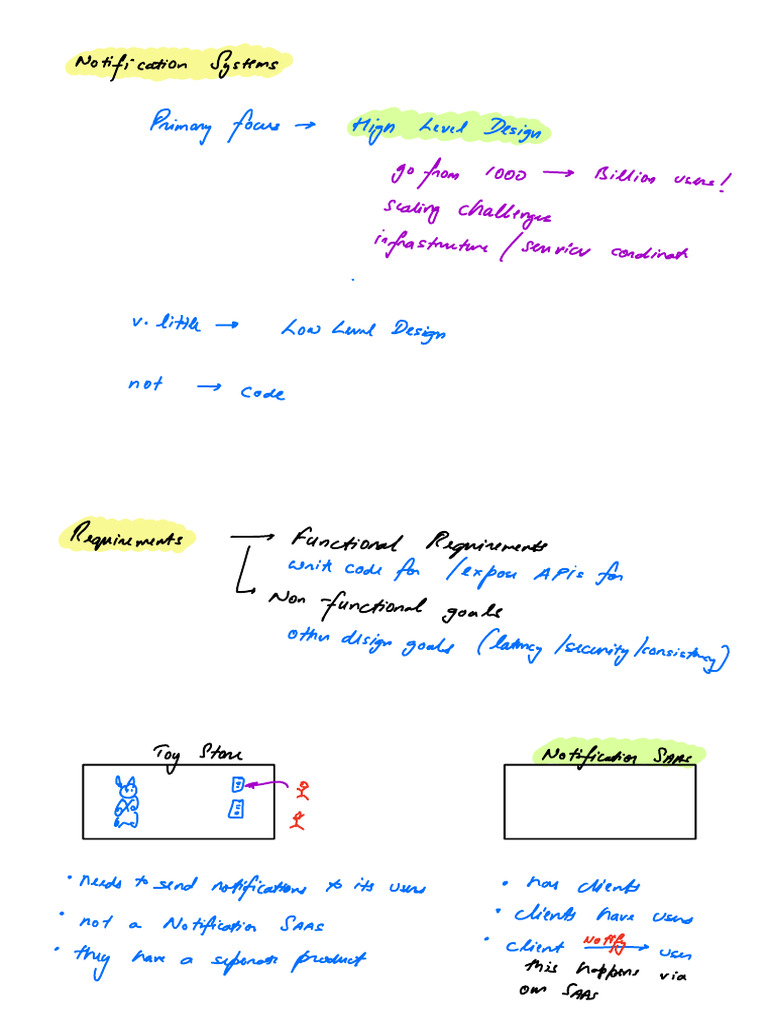 Notification Systems
Primary focus → High Level Design
go from 1000 → Billion users!
scaling challenges
infrastructure / service coordinat
v. little → Low Level Design
not → code
Requirements → Functional Requirements
write code for / expose APIs for
Non-functional goals
other design goals (latency/security/consistency)
Toy Store
• needs to send notifications to its users
• not a Notification SAAS
• they have a separate product
Notification SAAS
• has clients
• clients have users
• client Notify → user
this happens via
our SAAS